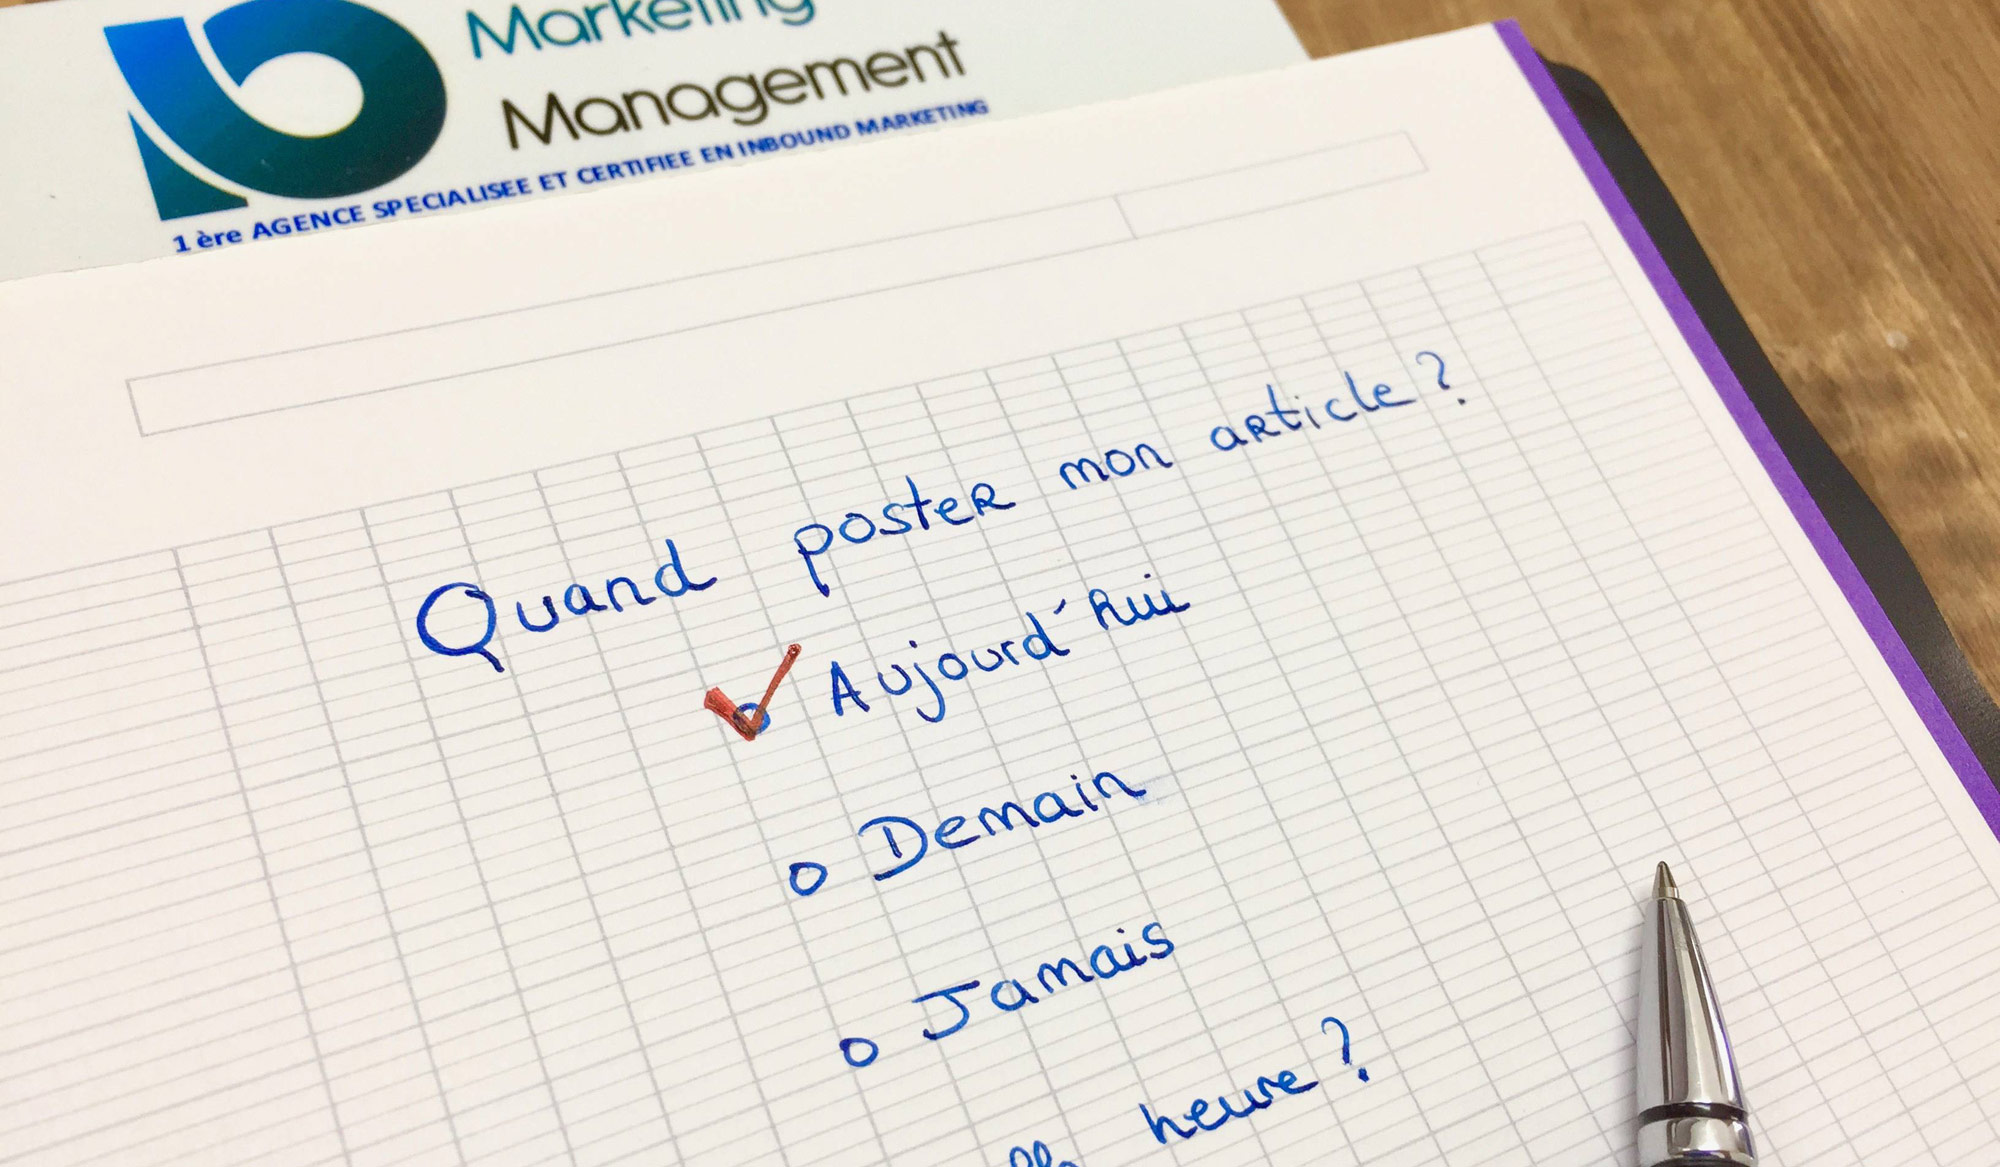 Marketing
Management
1 ère AGENCE SPECIALISEE ET CERTIFIEE EN INBOUND MARKETING
Quand poster mon article ?
Aujourd'hui
Demain
Jamais
heure ?